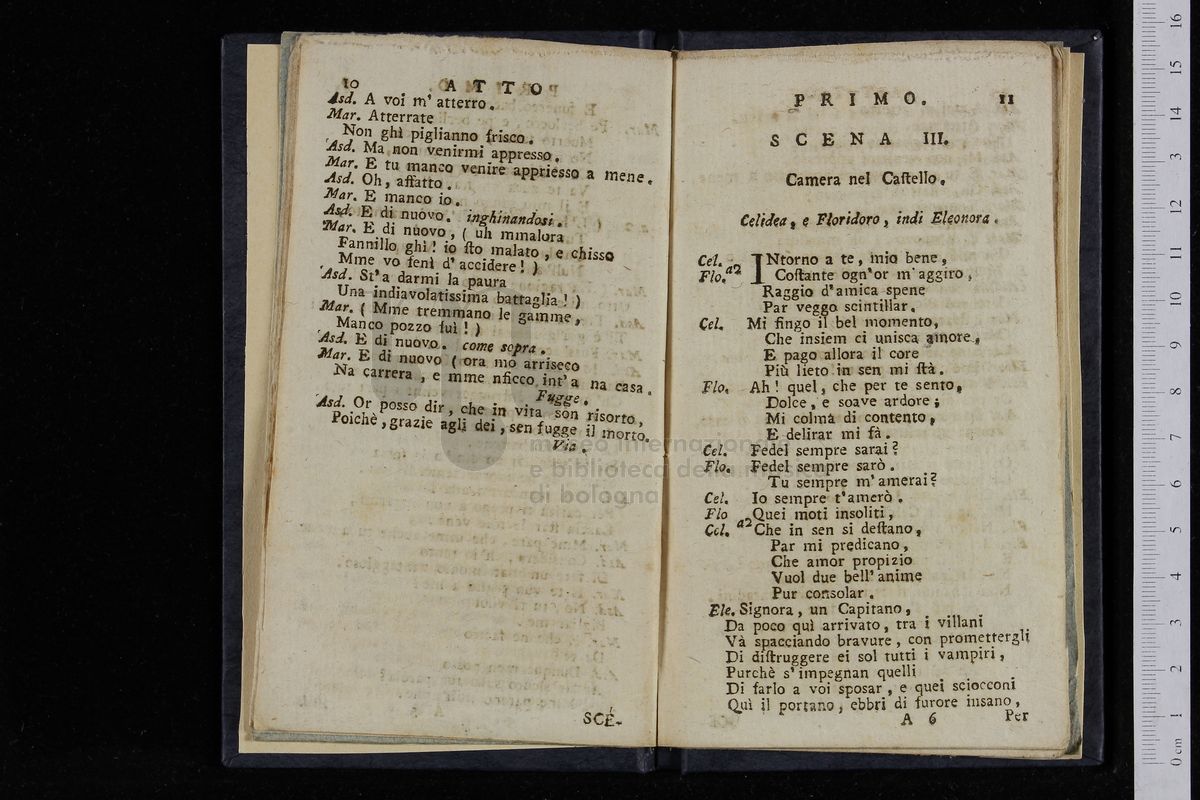 10 ATTO
Asd. A voi m' atterro.
Mar. Atterrate
Non ghì piglianno frisco.
Asd. Ma non venirmi appresso.
Mar. E tu manco venire appriesso a mene.
Asd. Oh, affatto.
Mar. E manco io.
Asd. E di nuovo. inghinandosi.
Mar. E di nuovo, ( uh mmalora
Fannillo ghì! io sto malato, e chisso
Mme vo fenì d' accidere! )
Asd. St' a darmi la paura
Una indiavolatissima battaglia! )
Mar. ( Mme tremmano le gamme,
Manco pozzo fuì! )
Asd. E di nuovo. come sopra.
Mar. E di nuovo ( ora mo arriseco
Na carrera, e mme nficco int' a na casa.
Fugge.
Asd. Or posso dir, che in vita son risorto,
Poichè, grazie agli dei, sen fugge il morto.
Via.
SCE-
PRIMO. 11
SCENA III.
Camera nel Castello.
Celidea, e Floridoro, indi Eleonora.
Cel. INtorno a te, mio bene,
Flo. a2 Costante ogn'or m'aggiro,
Raggio d'amica spene
Par veggo scintillar.
Cel. Mi fingo il bel momento,
Che insiem ci unisca amore,
E pago allora il core
Più lieto in sen mi stà.
Flo. Ah! quel, che per te sento,
Dolce, e soave ardore;
Mi colma di contento,
E delirar mi fà.
Cel. Fedel sempre sarai?
Flo. Fedel sempre sarò.
Tu sempre m'amerai?
Cel. Io sempre t'amerò.
Flo Quei moti insoliti,
Cel. a2 Che in sen si destano,
Par mi predicano,
Che amor propizio
Vuol due bell' anime
Pur consolar.
Ele. Signora, un Capitano,
Da poco quì arrivato, tra i villani
Và spacciando bravure, con promettergli
Di distruggere ei sol tutti i vampiri,
Purchè s' impegnan quelli
Di farlo a voi sposar, e quei sciocconi
Quì il portano, ebbri di furore insano,
A 6 Per
museo internazionale
e biblioteca della musica
di bologna